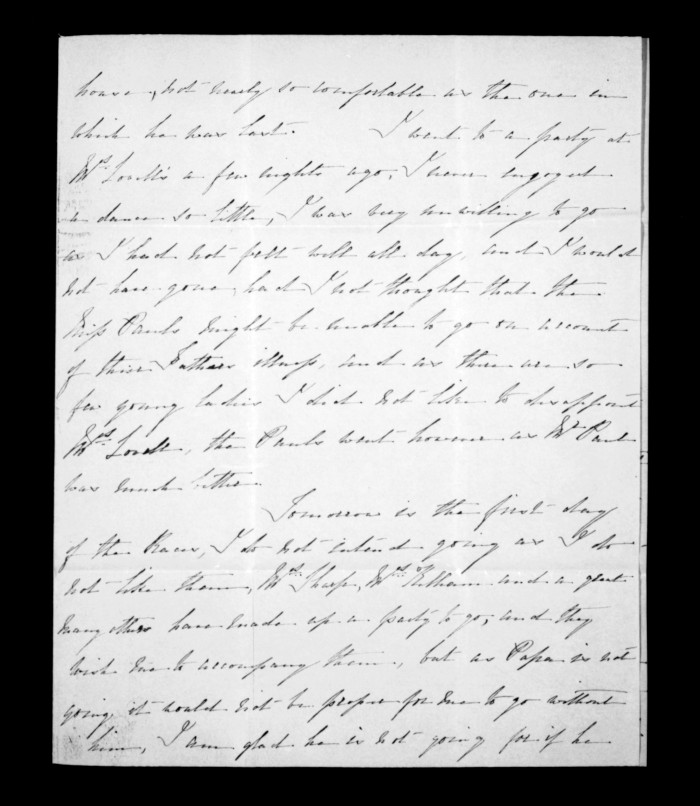 house, not nearly so comfortable as the one in
which he was last. I went to a party at
Mrs Lovell's a few nights ago, I never enjoyed
a dance so little, I was very unwilling to go
as I had not felt well all day, and I would
not have gone had I not thought that the
Miss Pauls might be unable to go on account
of their Fathers illness, and as there are so
few young ladies I did not like to disappoint
Mrs Lovell, the Pauls went however as Mr Paul
was much better.
Tomorrow is the first day
of the Races, I do not intend going as I do
not like them, Mrs Sharp, Mrs and a great
many others have made up a party to go, and they
wish me to accompany them, but as Papa is not
going it would not be proper for me to go without
him, I am glad he is not going for if he